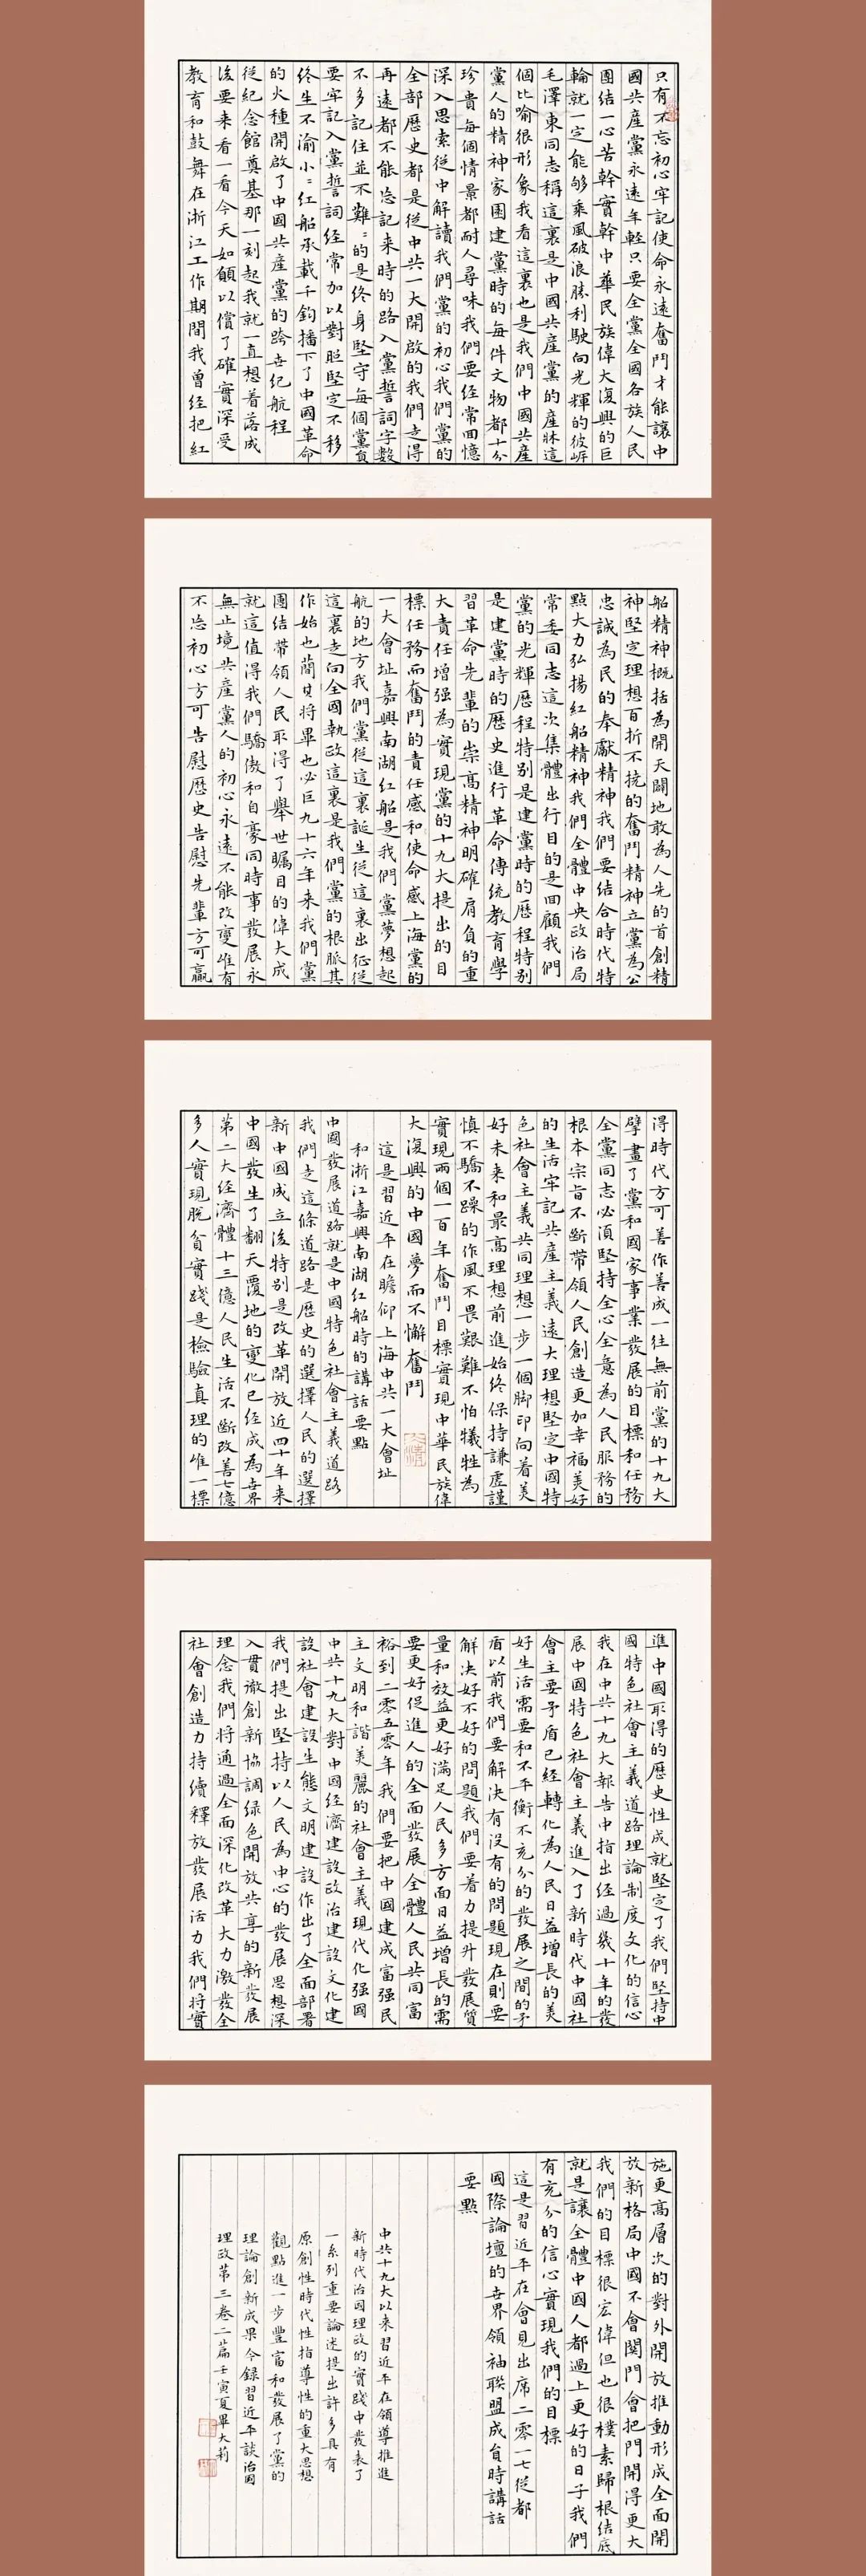 只有不忘初心牢記使命永遠奮鬥才能讓中
國共産黨永遠年輕只要全黨全國各族人民
團結一心苦幹實幹中華民族偉大復興的巨
輪就一定能够乘風破浪勝利駛向光輝的彼岸
毛澤東同志稱這裏是中國共産黨的産牀這
個比喻很形象我看這裏也是我們中國共産
黨人的精神家園建黨時的每件文物都十分
珍貴每個情景都耐人尋味我們要經常回憶
深入思索從中解讀我們黨的初心我們黨的
全部歷史都是從中共一大開啟的我們走得
再遠都不能忘記来時的路入黨誓詞字數
不多記住並不難〻的是終身堅守每個黨員
要牢記入黨誓詞經常加以對照堅定不移
終生不渝小〻紅船承載千鈞播下了中國革命
的火種開啟了中國共産黨的跨世紀航程
從紀念館奠基那一刻起我就一直想着落成
後要来看一看今天如願以償了確實深受
教育和鼓舞在浙江工作期間我曾經把紅
船精神概括為開天闢地敢為人先的首創精
神堅定理想百折不撓的奮鬥精神立黨為公
忠誠為民的奉獻精神我們要結合時代特
點大力弘揚紅船精神我們全體中央政治局
常委同志這次集體出行目的是回顧我們
黨的光輝歷程特别是建黨時的歷程特别
是建黨時的歷史進行革命傳統教育學
習革命先輩的崇高精神明確肩負的重
大責任增强為實現黨的十九大提出的目
標任務而奮鬥的責任感和使命感上海黨的
一大會址嘉興南湖紅船是我們黨夢想起
航的地方我們黨從這裏誕生從這裏出征從
這裏走向全國執政這裏是我們黨的根脈其
作始也簡其將畢也必巨九十六年来我們黨
團結帶領人民取得了舉世矚目的偉大成
就這值得我們驕傲和自豪同時事發展永
無止境共産黨人的初心永遠不能改變唯有
不忘初心方可告慰歷史告慰先輩方可贏
得時代方可善作善成一往無前黨的十九大
擘畫了黨和國家事業發展的目標和任務
全黨同志必須堅持全心全意為人民服務的
根本宗旨不斷帶領人民創造更加幸福美好
的生活牢記共産主義遠大理想堅定中國特
色社會主義共同理想一步一個脚印向着美
好未来和最高理想前進始終保持謙虛謹
慎不驕不躁的作風不畏艱難不怕犧牲為
實現兩個一百年奮鬥目標實現中華民族偉
大復興的中國夢而不懈奮鬥
這是習近平在瞻仰上海中共一大會址
和浙江嘉興南湖紅船時的講話要點
中國發展道路就是中國特色社會主義道路
我們走這條道路是歷史的選擇人民的選擇
新中國成立後特别是改革開放近四十年来
中國發生了翻天覆地的變化已經成為世界
第二大經濟體十三億人民生活不斷改善七億
多人實現脱貧實踐是檢驗真理的唯一標
進中國取得的歷史性成就堅定了我們堅持中
國特色社會主義道路理論制度文化的信心
我在中共十九大報告中指出經過幾十年的發
展中國特色社會主義進入了新時代中國社
會主要矛盾已經轉化為人民日益增長的美
好生活需要和不平衡不充分的發展之間的矛
盾以前我們要解決有沒有的問題現在則要
解決好不好的問題我們要着力提升發展質
量和效益更好滿足人民多方面日益增長的需
要更好促進人的全面發展全體人民共同富
裕到二零五零年我們要把中國建成富强民
主文明和諧美麗的社會主義現代化强國
中共十九大對中國經濟建設政治建設文化建
設社會建設生態文明建設作出了全面部署
我們提出堅持以人民為中心的發展思想深
入貫徹創新協調緑色開放共享的新發展
理念我們將通過全面深化改革大力激發全
社會創造力持續釋放發展活力我們將實
施更高層次的對外開放推動形成全面開
放新格局中國不會関門會把門開得更大
我們的目標很宏偉但也很樸素歸根結底
就是讓全體中國人都過上更好的日子我們
有充分的信心實現我們的目標
這是習近平在會見出席二零一七從都
國際論壇的世界領袖聯盟成員時講話
要點
中共十九大以来習近平在領導推進
新時代治國理政的實踐中發表了
一系列重要論述提出許多具有
原創性時代性指導性的重大思想
觀點進一步豐富和發展了黨的
理論創新成果今録習近平談治國
理政第三卷二篇壬寅夏畢大莉